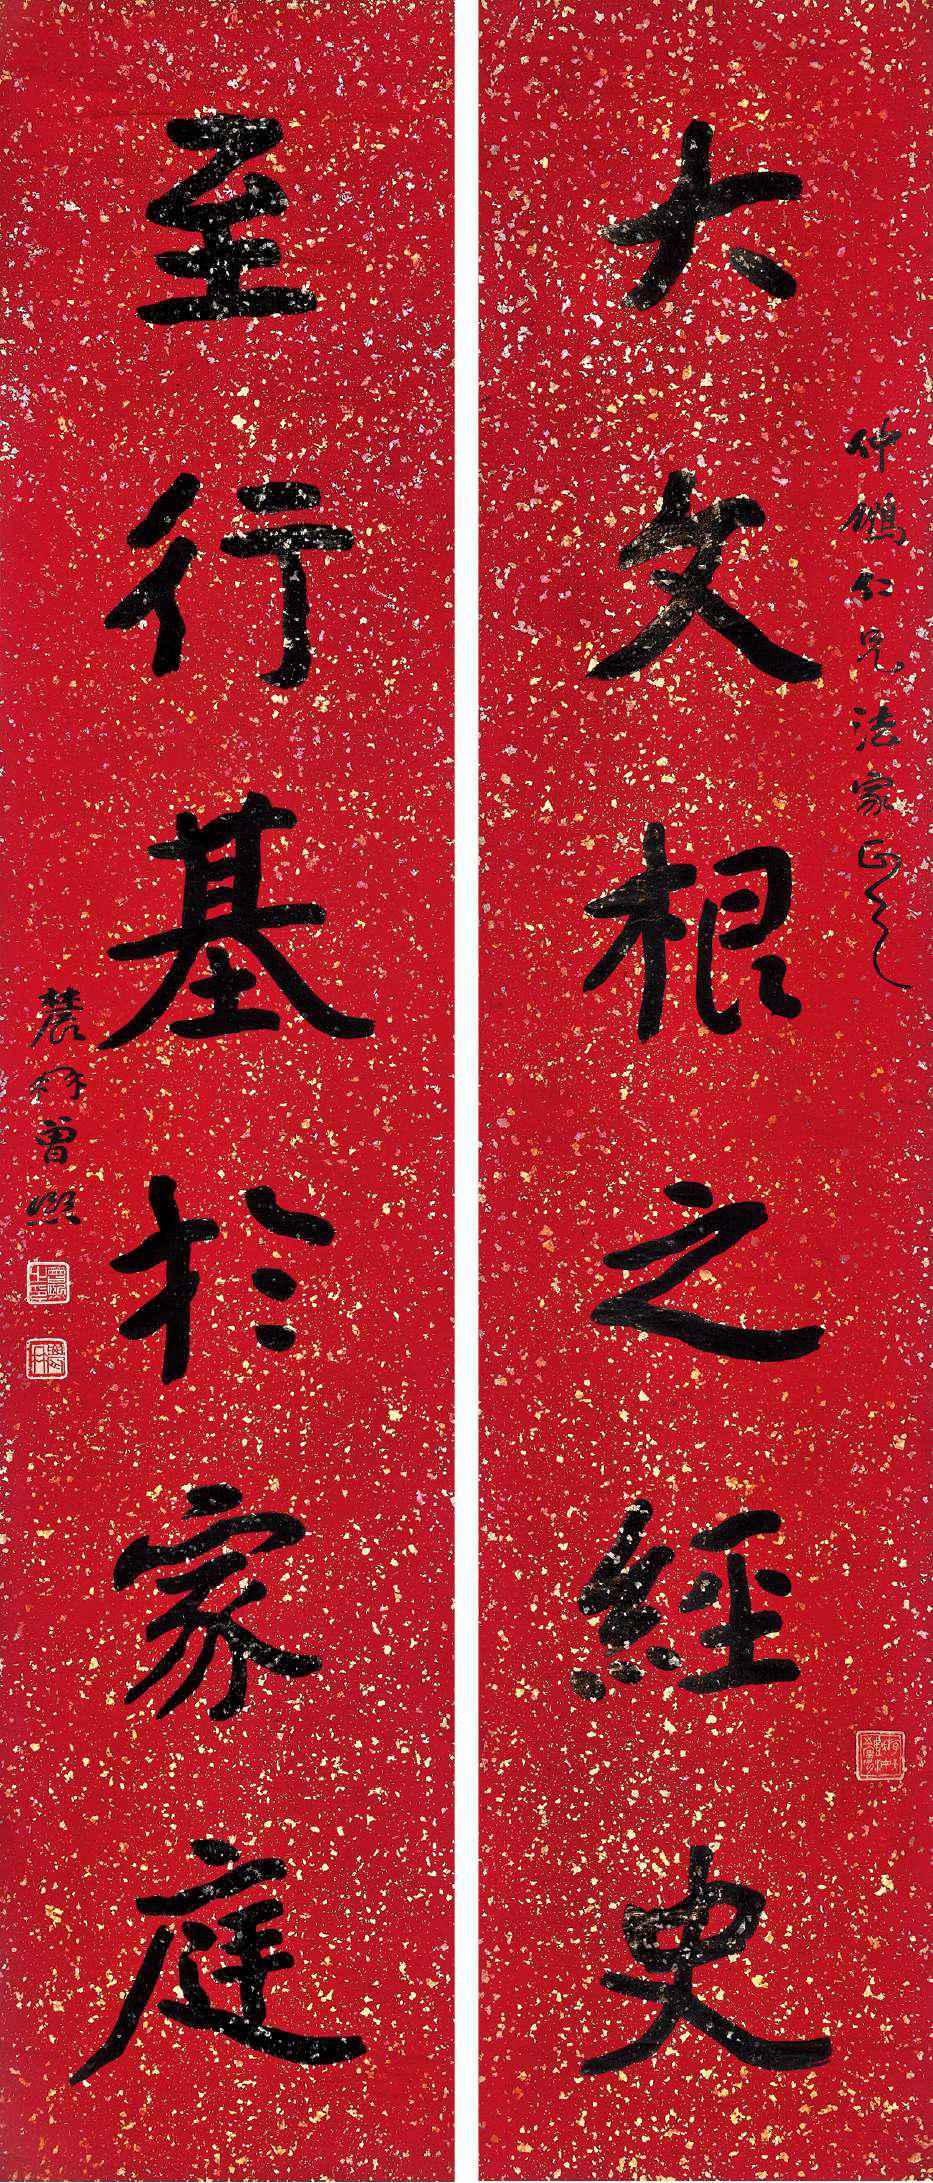 仲鶴仁兄法家正之
大文根之經史
至行基於家庭
農髯曾熙